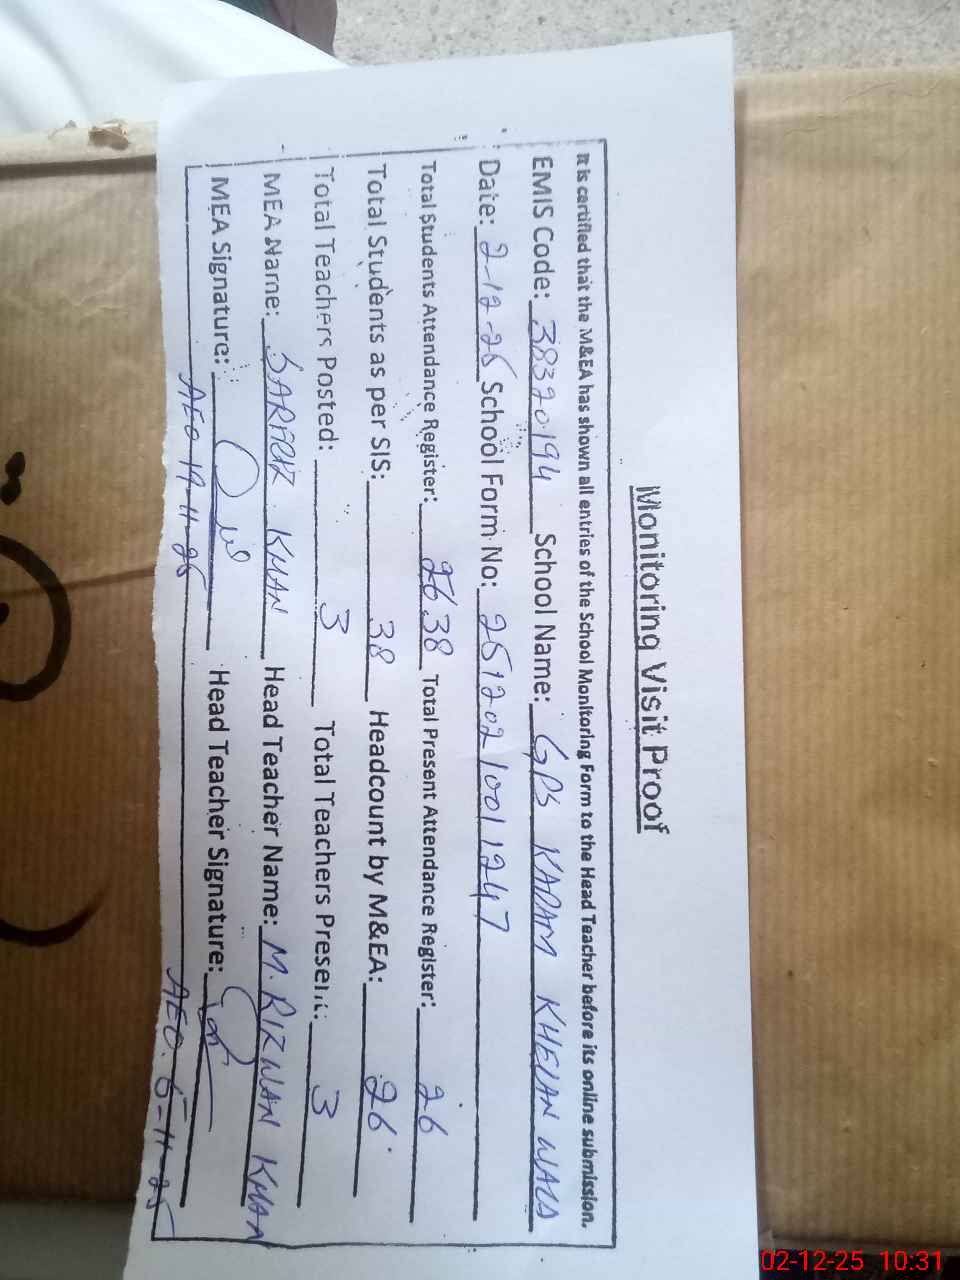 Monitoring Visit Proof
It is certified that the M&EA has shown all entries of the School Monitoring Form to the Head Teacher before its online submission.
EMIS Code: 38320194 School Name: GPS KADAM KHELAN WALA
Date: 2-12-25 School Form No: 2512021001247
Total Students Attendance Register: 38 Total Present Attendance Register: 26
Total Students as per SIS: 38 Headcount by M&EA: 26
Total Teachers Posted: 3 Total Teachers Present: 3
MEA Name: KHAN Head Teacher Name: M. RIZWAN KHAN
MEA Signature: Head Teacher Signature:
AEO 19-11-25 AEO. 6-11-25
02-12-25 10:31